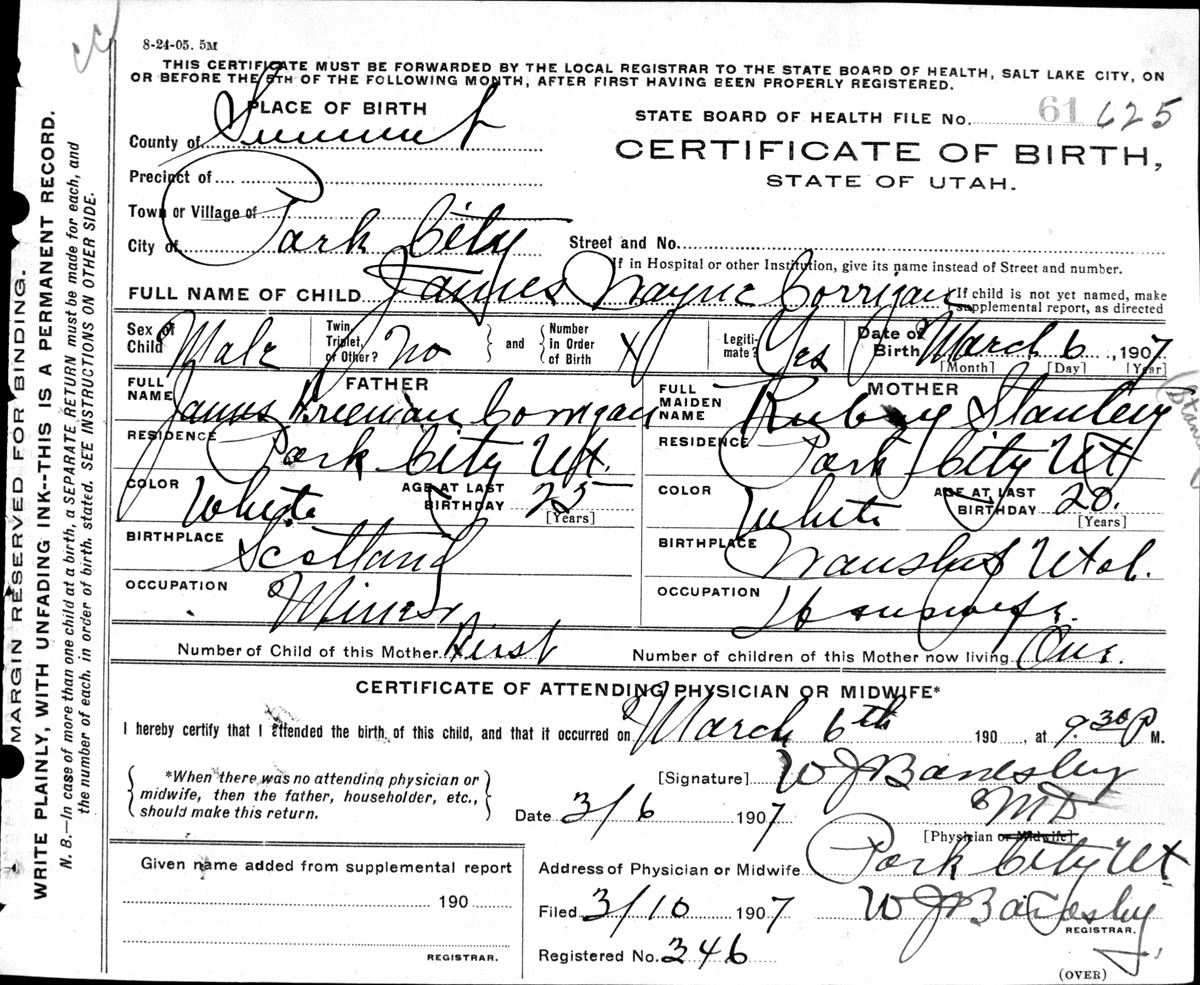 8-24-05. 5M
THIS CERTIFICATE MUST BE FORWARDED BY THE LOCAL REGISTRAR TO THE STATE BOARD OF HEALTH, SALT LAKE CITY, ON
OR BEFORE THE 5TH OF THE FOLLOWING MONTH, AFTER FIRST HAVING BEEN PROPERLY REGISTERED.
PLACE OF BIRTH
STATE BOARD OF HEALTH FILE No. 61 625
County of Summit
CERTIFICATE OF BIRTH,
STATE OF UTAH.
Precinct of
Town or Village of
City of Park City
Street and No.
If in Hospital or other Institution, give its name instead of Street and number.
FULL NAME OF CHILD James Wayne Corrigan If child is not yet named, make supplemental report, as directed
Sex of Child Male Twin, Triplet, or Other? No and Number in Order of Birth X Legitimate? Yes Date of Birth March 6, 1907
[Month] [Day] [Year]
FATHER
FULL NAME James Freeman Corrigan
RESIDENCE Park City Ut.
COLOR White AGE AT LAST BIRTHDAY 25
[Years]
BIRTHPLACE Scotland
OCCUPATION Miner
MOTHER
FULL MAIDEN NAME Ruby Stanley
RESIDENCE Park City Ut
COLOR White AGE AT LAST BIRTHDAY 20.
[Years]
BIRTHPLACE Wanship Utah.
OCCUPATION Housewife.
Number of Child of this Mother First Number of children of this Mother now living One.
CERTIFICATE OF ATTENDING PHYSICIAN OR MIDWIFE*
I hereby certify that I attended the birth of this child, and that it occurred on March 6th 190 , at 9.30 P M.
*When there was no attending physician or
midwife, then the father, householder, etc.,
should make this return.
[Signature] W J Bardsley
M D
[Physician or Midwife]
Date 3/6 1907
Address of Physician or Midwife Park City Ut
Given name added from supplemental report
190
REGISTRAR.
Filed 3/10 1907 W J Bardsley
REGISTRAR.
Registered No. 346
(OVER)
MARGIN RESERVED FOR BINDING.
WRITE PLAINLY, WITH UNFADING INK--THIS IS A PERMANENT RECORD.
N. B.—In case of more than one child at a birth, a SEPARATE RETURN must be made for each, and
the number of each, in order of birth, stated. SEE INSTRUCTIONS ON OTHER SIDE.